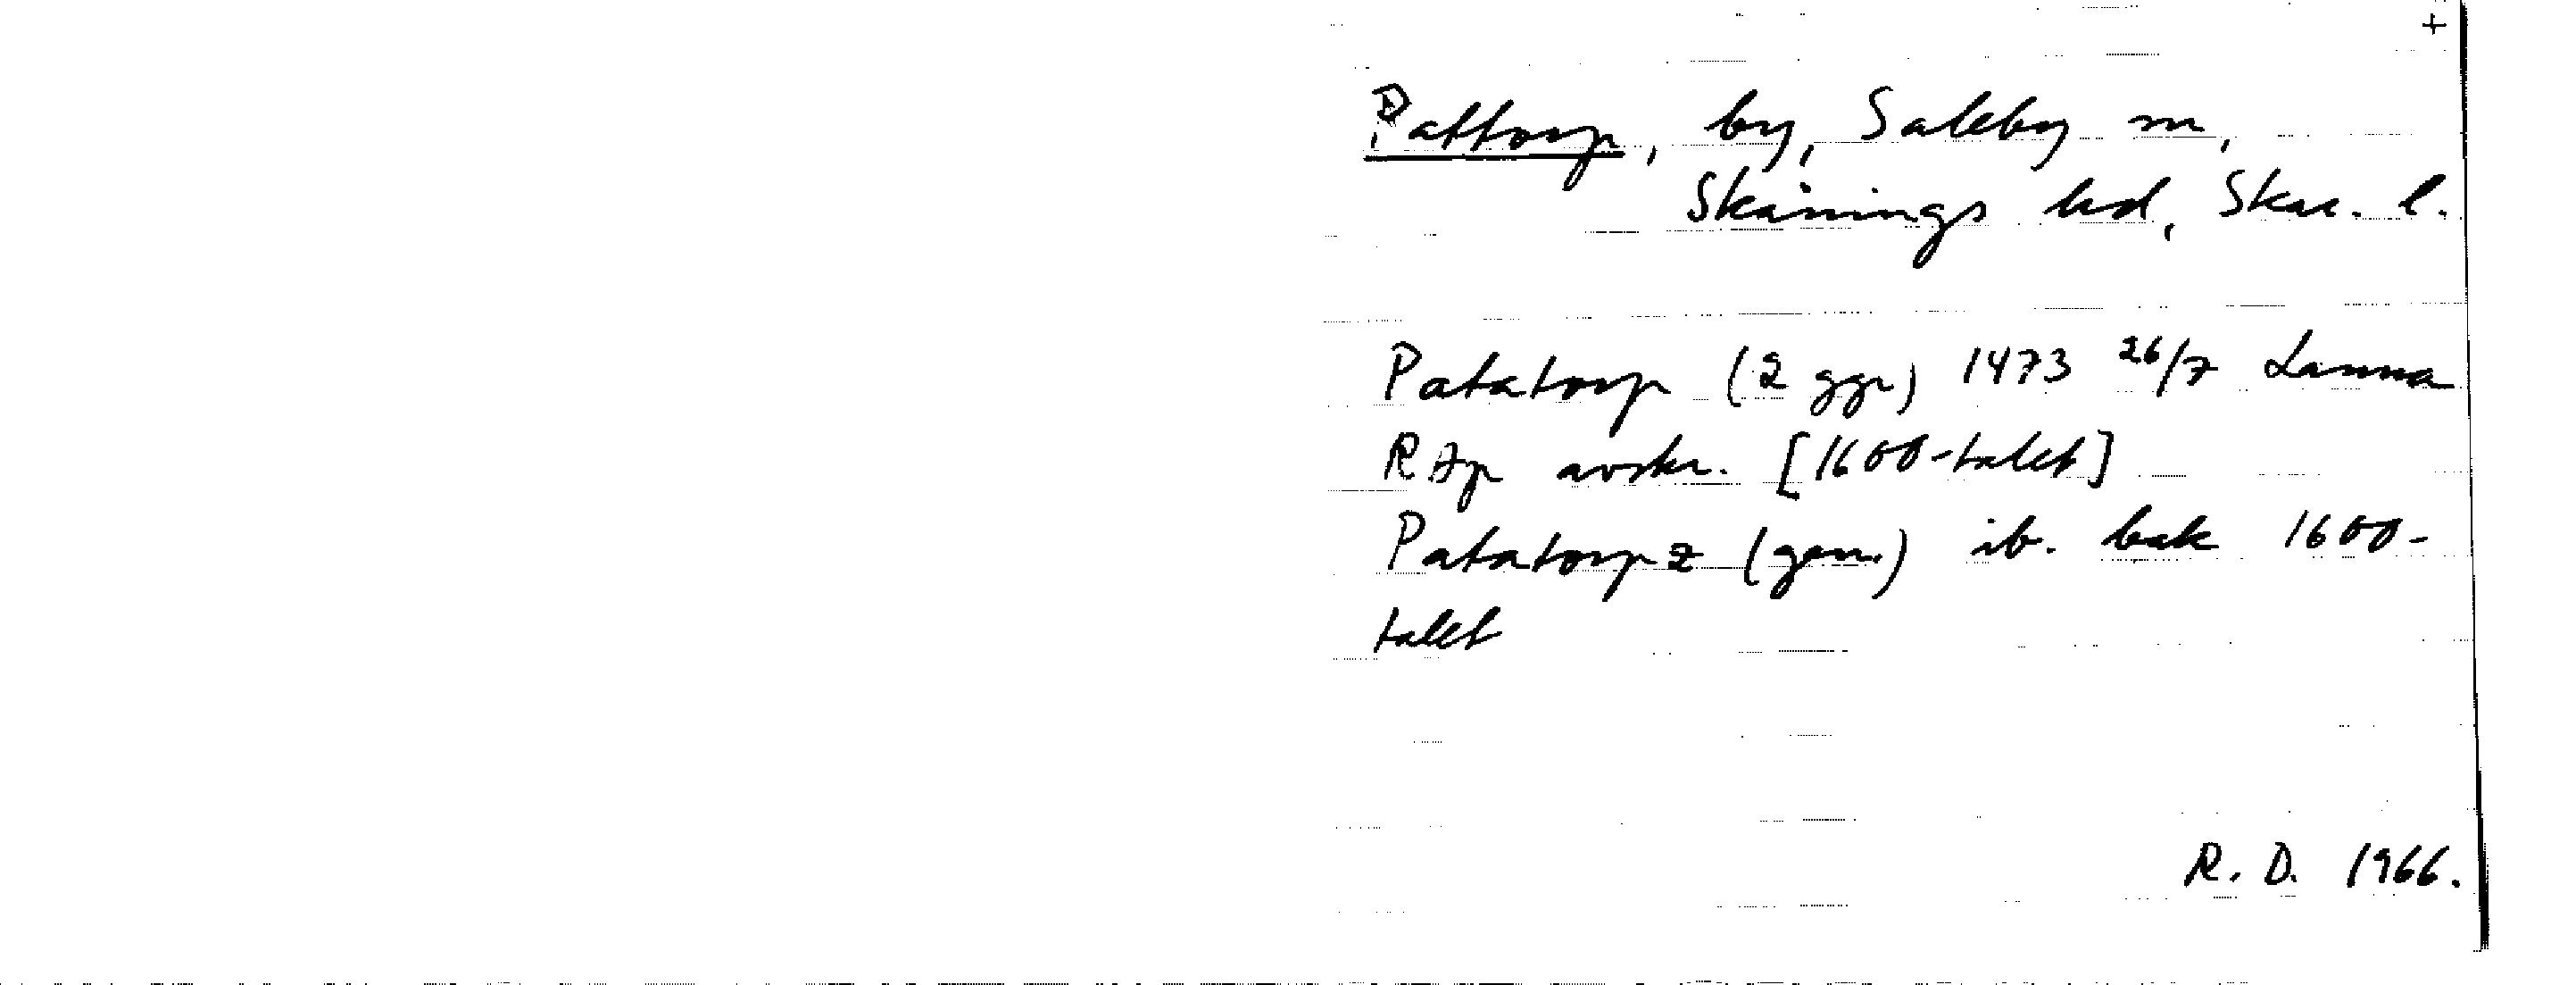 +
Pattorp, by, Saleby sn,
Skånings hd, Skar. l.
Patatorp (2 ggr) 1473 26/7 Lanna
RAp avskr. [1600-talet]
Patatorpz (gen.) ib. bak 1600-
talet
R. D. 1966.